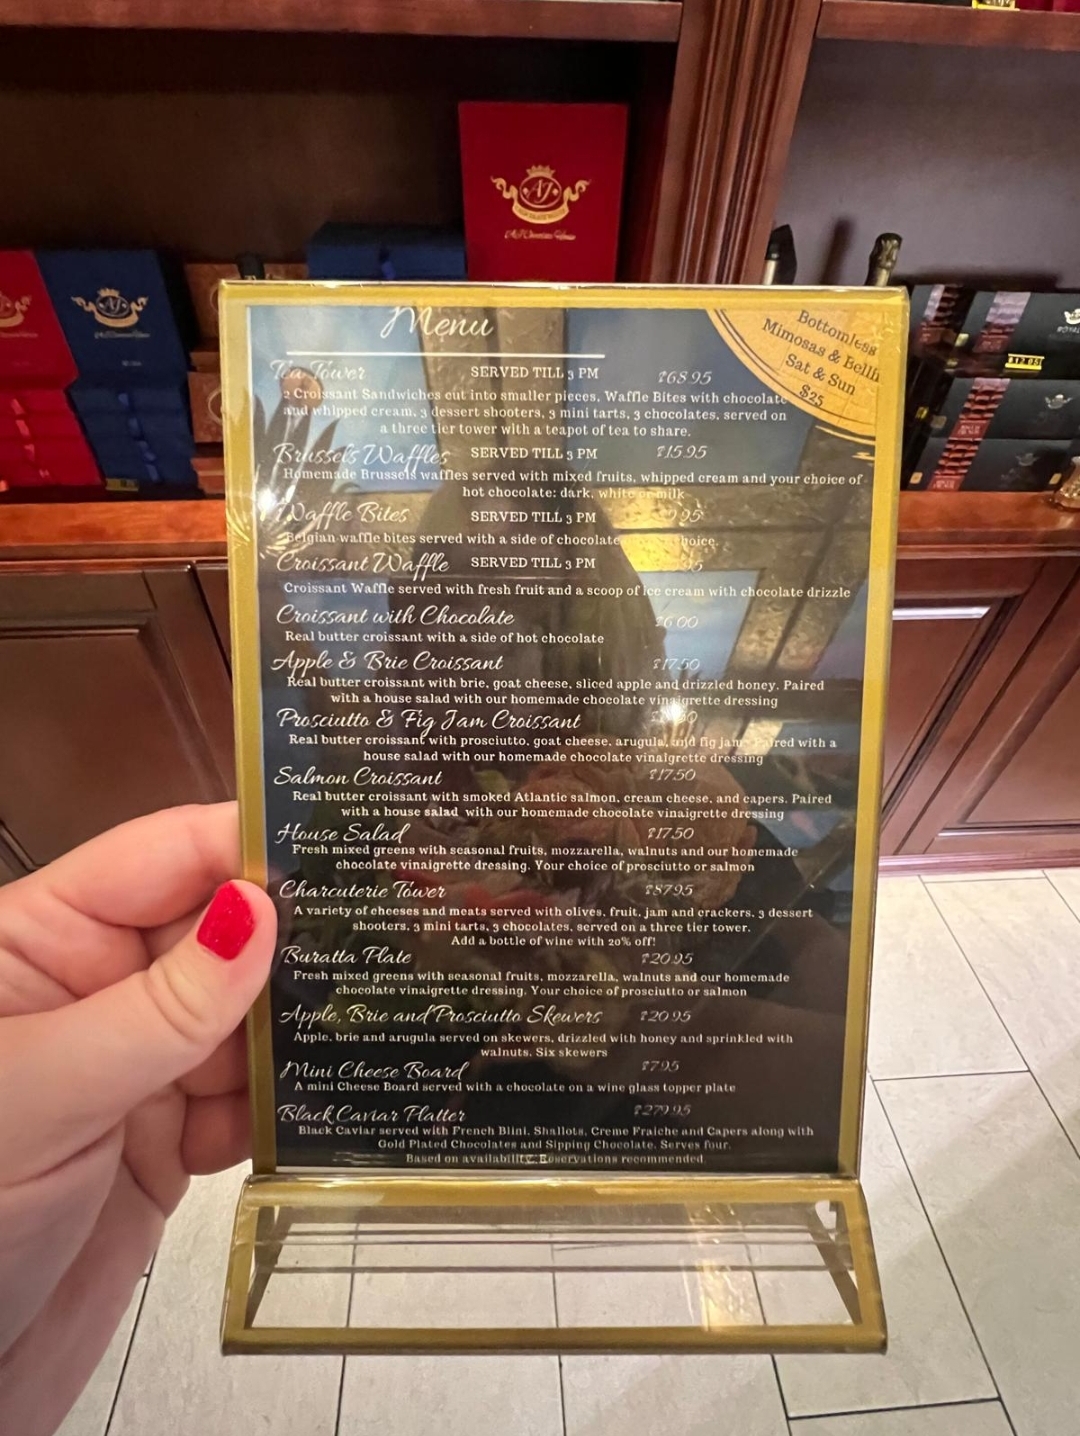 AJ
AJ Chocolate House
AJ
Bottomless
Mimosas & Bellii
Sat & Sun
$25
$12.95
Menu
Tea Tower SERVED TILL 3 PM $68.95
2 Croissant Sandwiches cut into smaller pieces, Waffle Bites with chocolate
and whipped cream, 3 dessert shooters, 3 mini tarts, 3 chocolates, served on
a three tier tower with a teapot of tea to share.
Brussels Waffles SERVED TILL 3 PM $15.95
Homemade Brussels waffles served with mixed fruits, whipped cream and your choice of
hot chocolate: dark, white or milk
Waffle Bites SERVED TILL 3 PM
Belgian waffle bites served with a side of chocolate choice.
Croissant Waffle SERVED TILL 3 PM
Croissant Waffle served with fresh fruit and a scoop of ice cream with chocolate drizzle
Croissant with Chocolate $6.00
Real butter croissant with a side of hot chocolate
Apple & Brie Croissant $17.50
Real butter croissant with brie, goat cheese, sliced apple and drizzled honey. Paired
with a house salad with our homemade chocolate vinaigrette dressing
Prosciutto & Fig Jam Croissant
Real butter croissant with prosciutto, goat cheese, arugula, and fig jam. Paired with a
house salad with our homemade chocolate vinaigrette dressing
Salmon Croissant $17.50
Real butter croissant with smoked Atlantic salmon, cream cheese, and capers. Paired
with a house salad with our homemade chocolate vinaigrette dressing
House Salad $17.50
Fresh mixed greens with seasonal fruits, mozzarella, walnuts and our homemade
chocolate vinaigrette dressing. Your choice of prosciutto or salmon
Charcuterie Tower $87.95
A variety of cheeses and meats served with olives, fruit, jam and crackers. 3 dessert
shooters, 3 mini tarts, 3 chocolates, served on a three tier tower.
Add a bottle of wine with 20% off!
Buratta Plate $20.95
Fresh mixed greens with seasonal fruits, mozzarella, walnuts and our homemade
chocolate vinaigrette dressing. Your choice of prosciutto or salmon
Apple, Brie and Prosciutto Skewers $20.95
Apple, brie and arugula served on skewers, drizzled with honey and sprinkled with
walnuts. Six skewers
Mini Cheese Board $7.95
A mini Cheese Board served with a chocolate on a wine glass topper plate
Black Caviar Platter $279.95
Black Caviar served with French Blini, Shallots, Creme Fraiche and Capers along with
Gold Plated Chocolates and Sipping Chocolate. Serves four.
Based on availability. Reservations recommended.